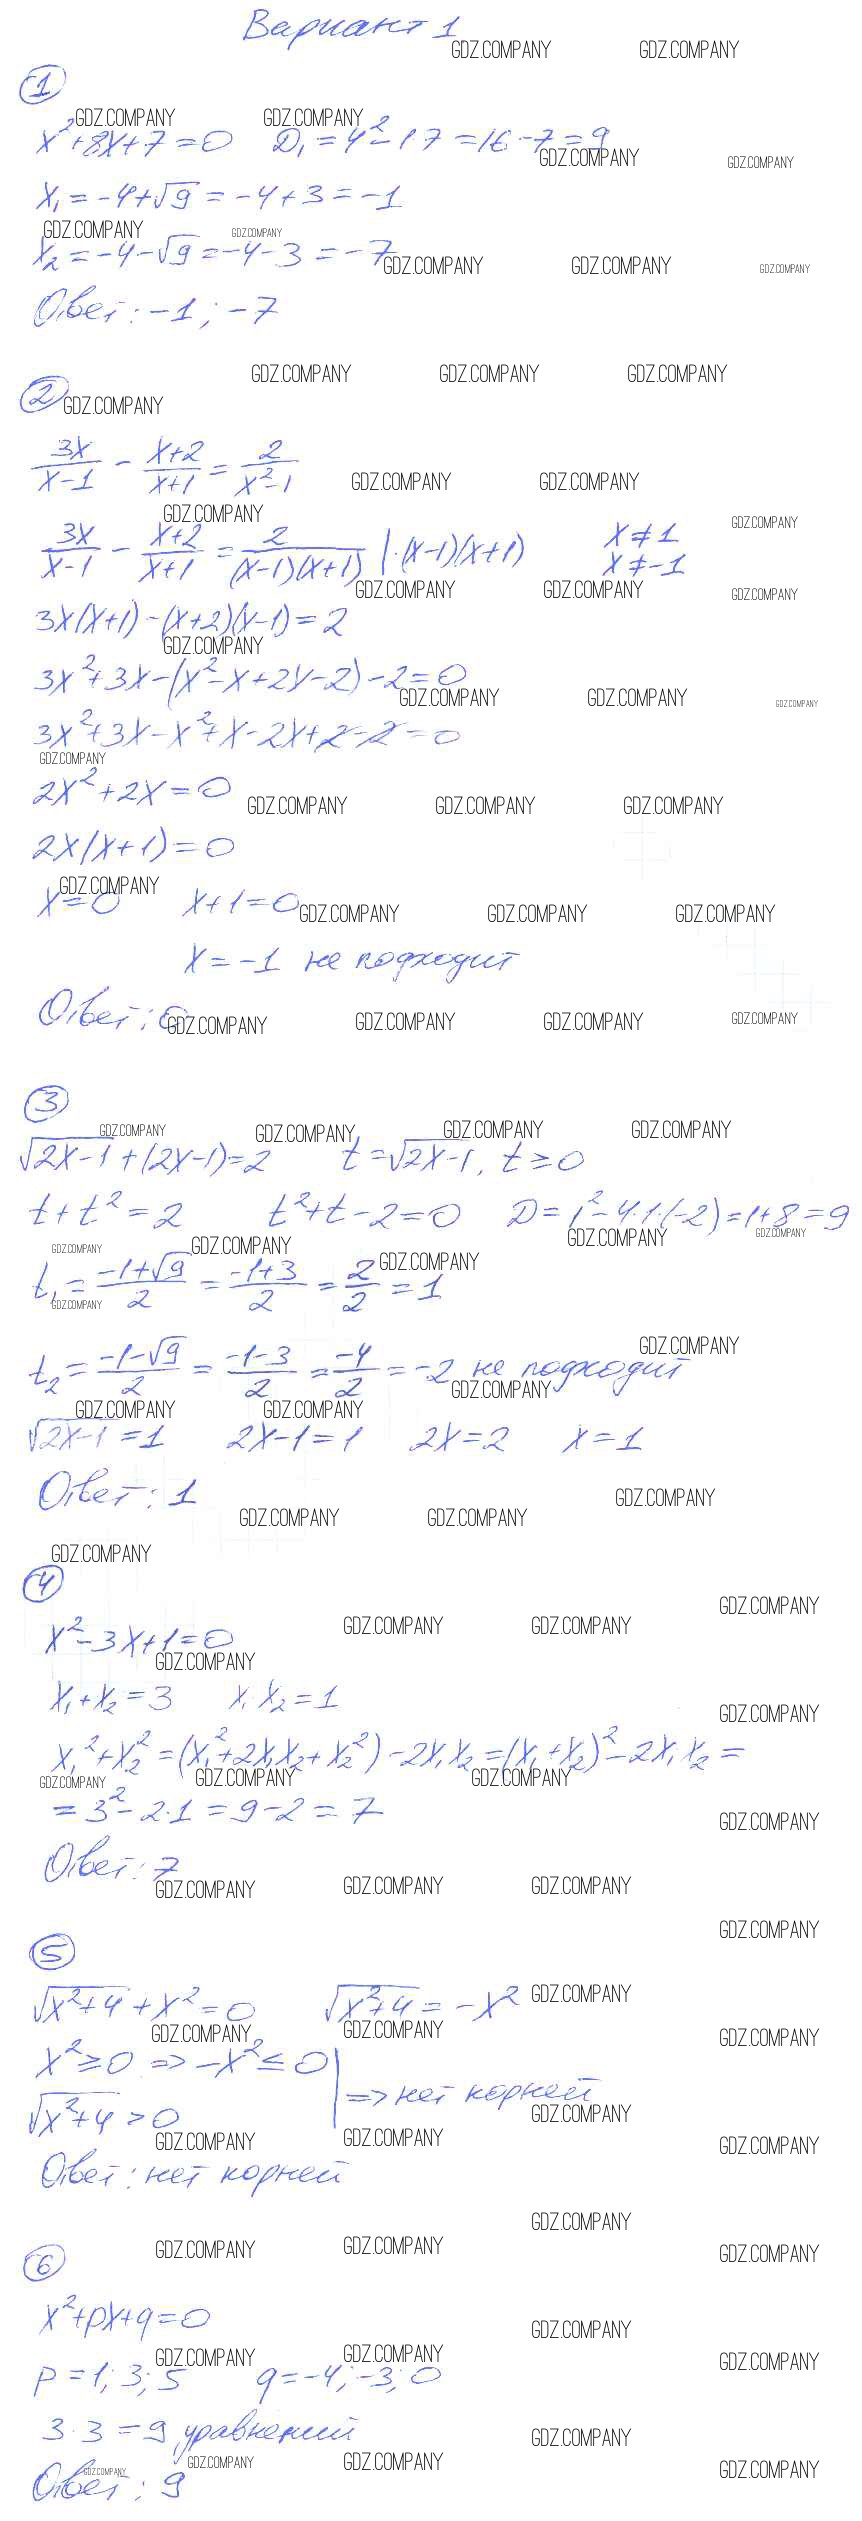 Вариант 1
1
x²+8x+7=0 D₁=4²-1·7=16-7=9
x₁=-4+√9=-4+3=-1
x₂=-4-√9=-4-3=-7
Ответ: -1; -7
2
3x/(x-1) - (x+2)/(x+1) = 2/(x²-1)
3x/(x-1) - (x+2)/(x+1) = 2/((x-1)(x+1)) |·(x-1)(x+1) x≠1
x≠-1
3x(x+1)-(x+2)(x-1)=2
3x²+3x-(x²-x+2x-2)-2=0
3x²+3x-x²+x-2x+2-2=0
2x²+2x=0
2x(x+1)=0
x=0 x+1=0
x=-1 не подходит
Ответ: 0
3
√(2x-1)+(2x-1)=2 t=√(2x-1), t≥0
t+t²=2 t²+t-2=0 D=1²-4·1·(-2)=1+8=9
t₁=(-1+√9)/2=(-1+3)/2=2/2=1
t₂=(-1-√9)/2=(-1-3)/2=-4/2=-2 не подходит
√(2x-1)=1 2x-1=1 2x=2 x=1
Ответ: 1
4
x²-3x+1=0
x₁+x₂=3 x₁x₂=1
x₁²+x₂²=(x₁²+2x₁x₂+x₂²)-2x₁x₂=(x₁+x₂)²-2x₁x₂=
=3²-2·1=9-2=7
Ответ: 7
5
√(x²+4)+x²=0 √(x²+4)=-x²
x²≥0 => -x²≤0
√(x²+4)>0 => нет корней
Ответ: нет корней
6
x²+px+q=0
p=1; 3; 5 q=-4; -3; 0
3·3=9 уравнений
Ответ: 9
GDZ.COMPANY